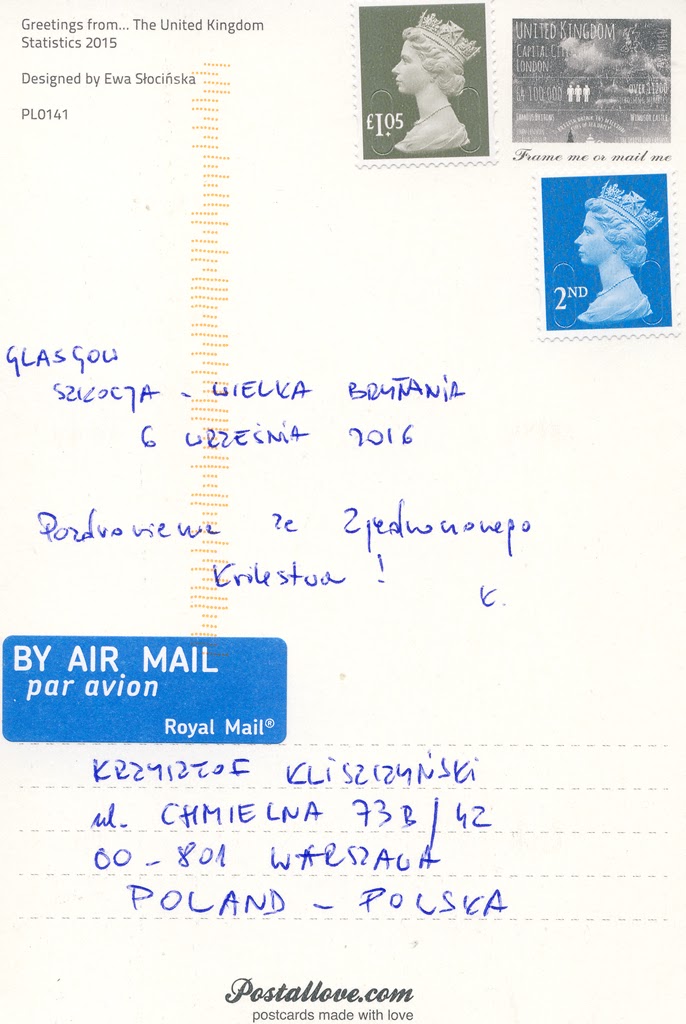 Greetings from... The United Kingdom
Statistics 2015
Designed by Ewa Słocińska
PL0141
£1.05
UNITED KINGDOM
CAPITAL CITY
LONDON
64 100 000
WINDSOR CASTLE
Frame me or mail me
2ND
GLASGOW
SZKOCJA - WIELKA BRYTANIA
6 WRZEŚNIA 2016
Pozdrowienia ze Zjednoczonego
Królestwa !
K.
BY AIR MAIL
par avion
Royal Mail®
KRZYSZTOF KLISZCZYŃSKI
ul. CHMIELNA 73B/42
00-801 WARSZAWA
POLAND - POLSKA
Postallove.com
postcards made with love